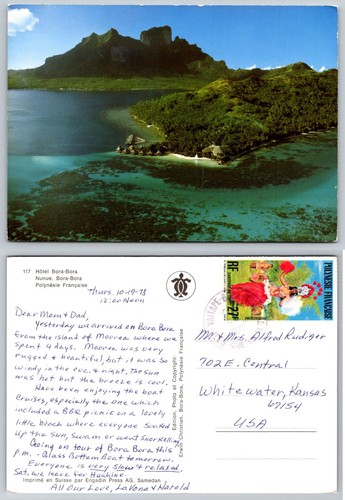 117 Hôtel Bora-Bora
Nunue, Bora-Bora
Polynésie Française
Thurs. 10-19-78
12:00 Noon
Dear Mom & Dad,
Yesterday we arrived on Bora Bora
from the island of Moorea where we
spent 4 days. Moorea was very
rugged & beautiful, but it was so
windy in the eve. & night. The sun
was hot but the breeze is cool.
Have been enjoying the boat
cruises, especially the one which
included a BBQ picnic on a lovely
little beach where everyone soaked
up the sun, swam or went snorkeling.
Going on tour of Bora Bora this
p.m. - Glass Bottom Boat tomorrow.
Everyone is very slow & relaxed.
Sat. we leave for Huahine.
All Our Love, LaVona & Harold
Imprimé en Suisse par Engadin Press AG, Samedan
Edition, Photo et Copyright:
Erwin Christian, Bora-Bora, Polynésie Française
RF
POLYNESIE FRANCAISE
Mr. & Mrs. Alfred Rudiger
702 E. Central
Whitewater, Kansas
67154
USA